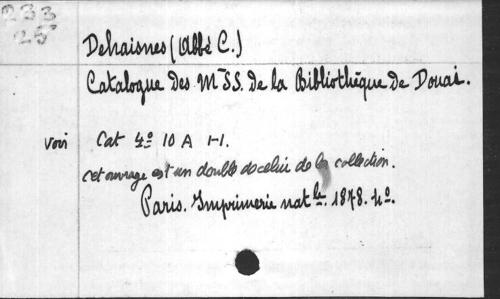 233
25
Dehaisnes (Abbé C.)
Catalogue des MSS. de la Bibliothèque de Douai.
voir Cat 4º 10 A 1-1.
cet ouvrage est un double de celui de la collection.
Paris. Imprimerie natle. 1878. 4º.